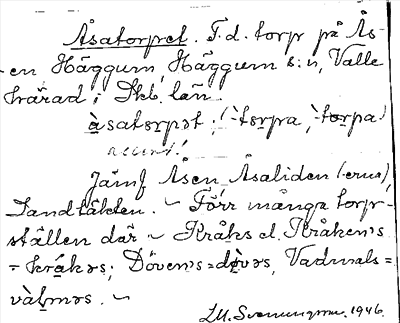 Åsatorpet. F.d. torp på Ås-
en Häggum, Häggum s:n, Valle
härad, Skb. län.
àsatɷrpət; (-tɷrpa, -tɷrpa)
accent!
Jämf Åsen, Åsaliden (-erna),
Sandtäkten. ~ Förr många torp-
ställen där ~ Kråks el. Kråken's
= kråkəs; Döven's = døvəs, Vadmals =
vàɫməs. ~
Svenningsson. 1946.